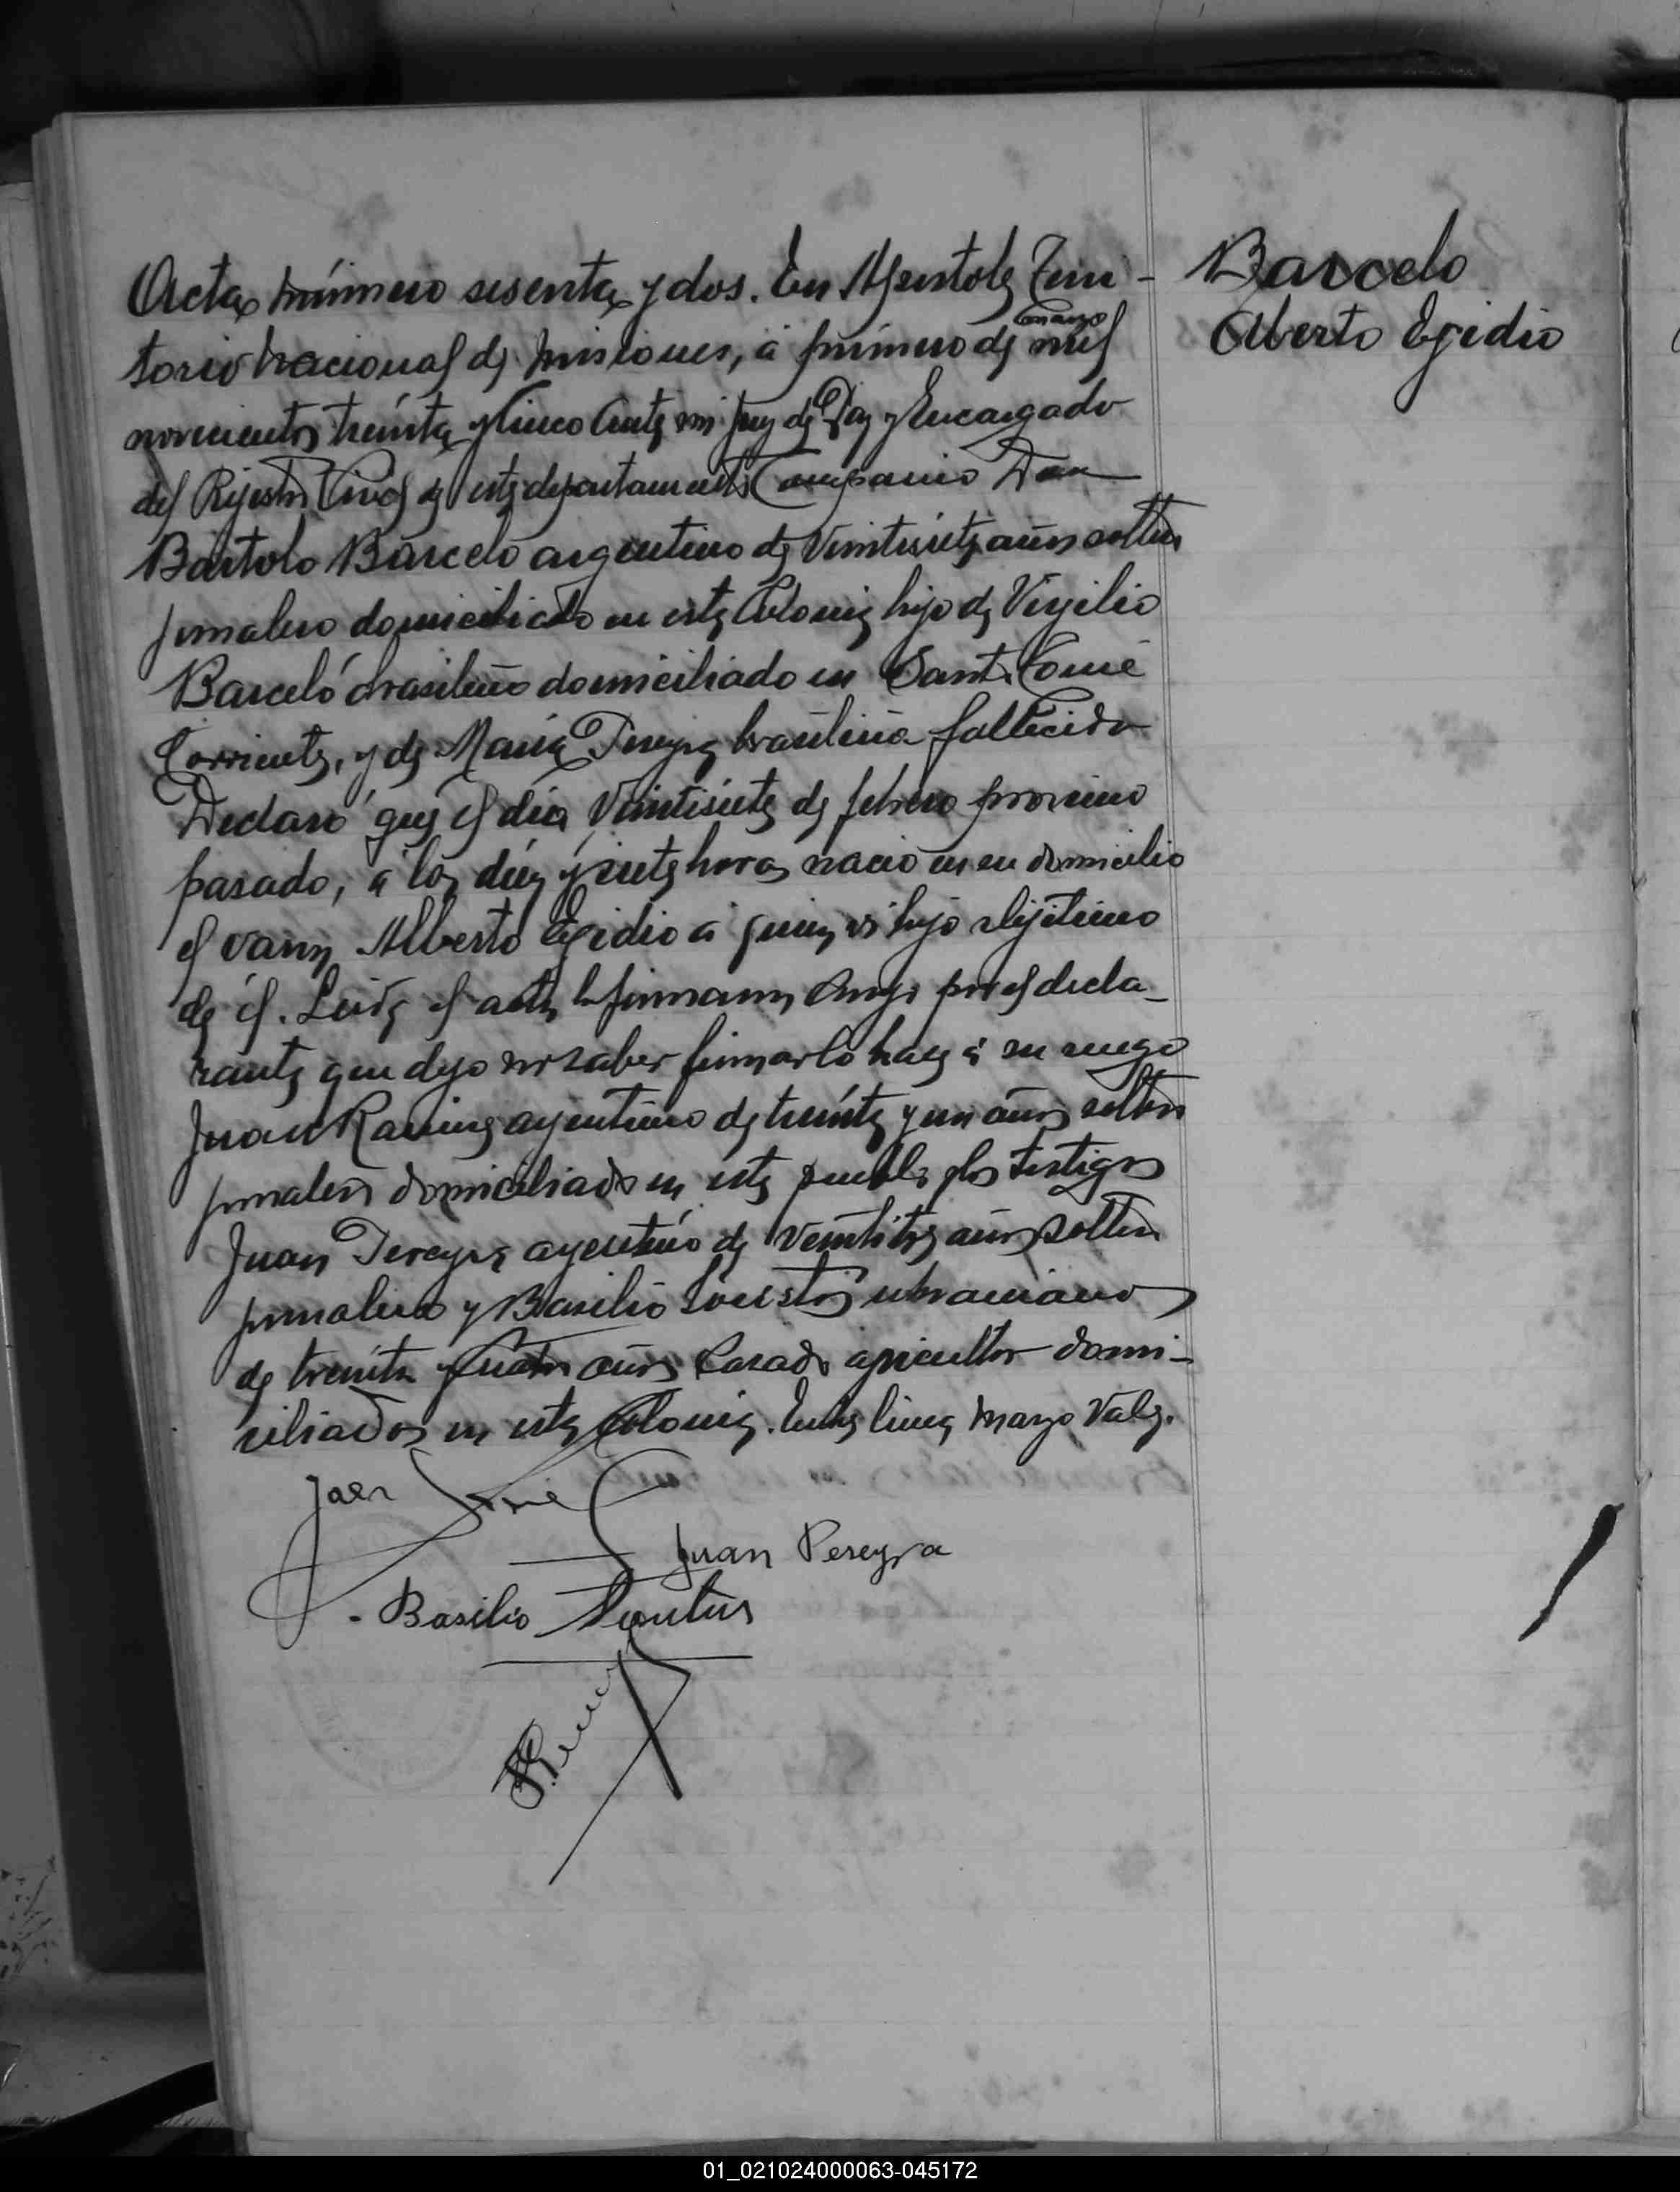 Acta número sesenta y dos. En Apostoles Terri-
torio nacional de Misiones, á primero de marzo mil
novecientos treinta y cinco Ante mi Juez de Paz y Encargado
del Rejistro Civil de este departamento Compareció Don
Bartolo Barceló argentino de Veintisiete años soltero
jornalero domiciliado en esta Colonia hijo de Virjilio
Barceló brasileño domiciliado en Santo Tomé
Corrientes, y de María Pereyra brasileña fallecida
Declaró que el día Veintisiete de febrero proximo
pasado, á las diez y siete horas nació en su domicilio
el varon Alberto Egidio á quien es hijo
de él. Leida el acta la firmaron por el decla-
rante que dijo no saber firmar lo hace á su ruego
Juan argentino de treinta y un años soltero
jornalero domiciliado en este pueblo y los testigos
Juan Pereyra argentino de años soltero
jornalero y Basilio ukraniano
de treinta y cuatro años Casado agricultor domi-
ciliados en esta Colonia. Entre linea marzo Vale.
Juan Pereyra
Basilio
Barcelo
Alberto Egidio
01_021024000063-045172